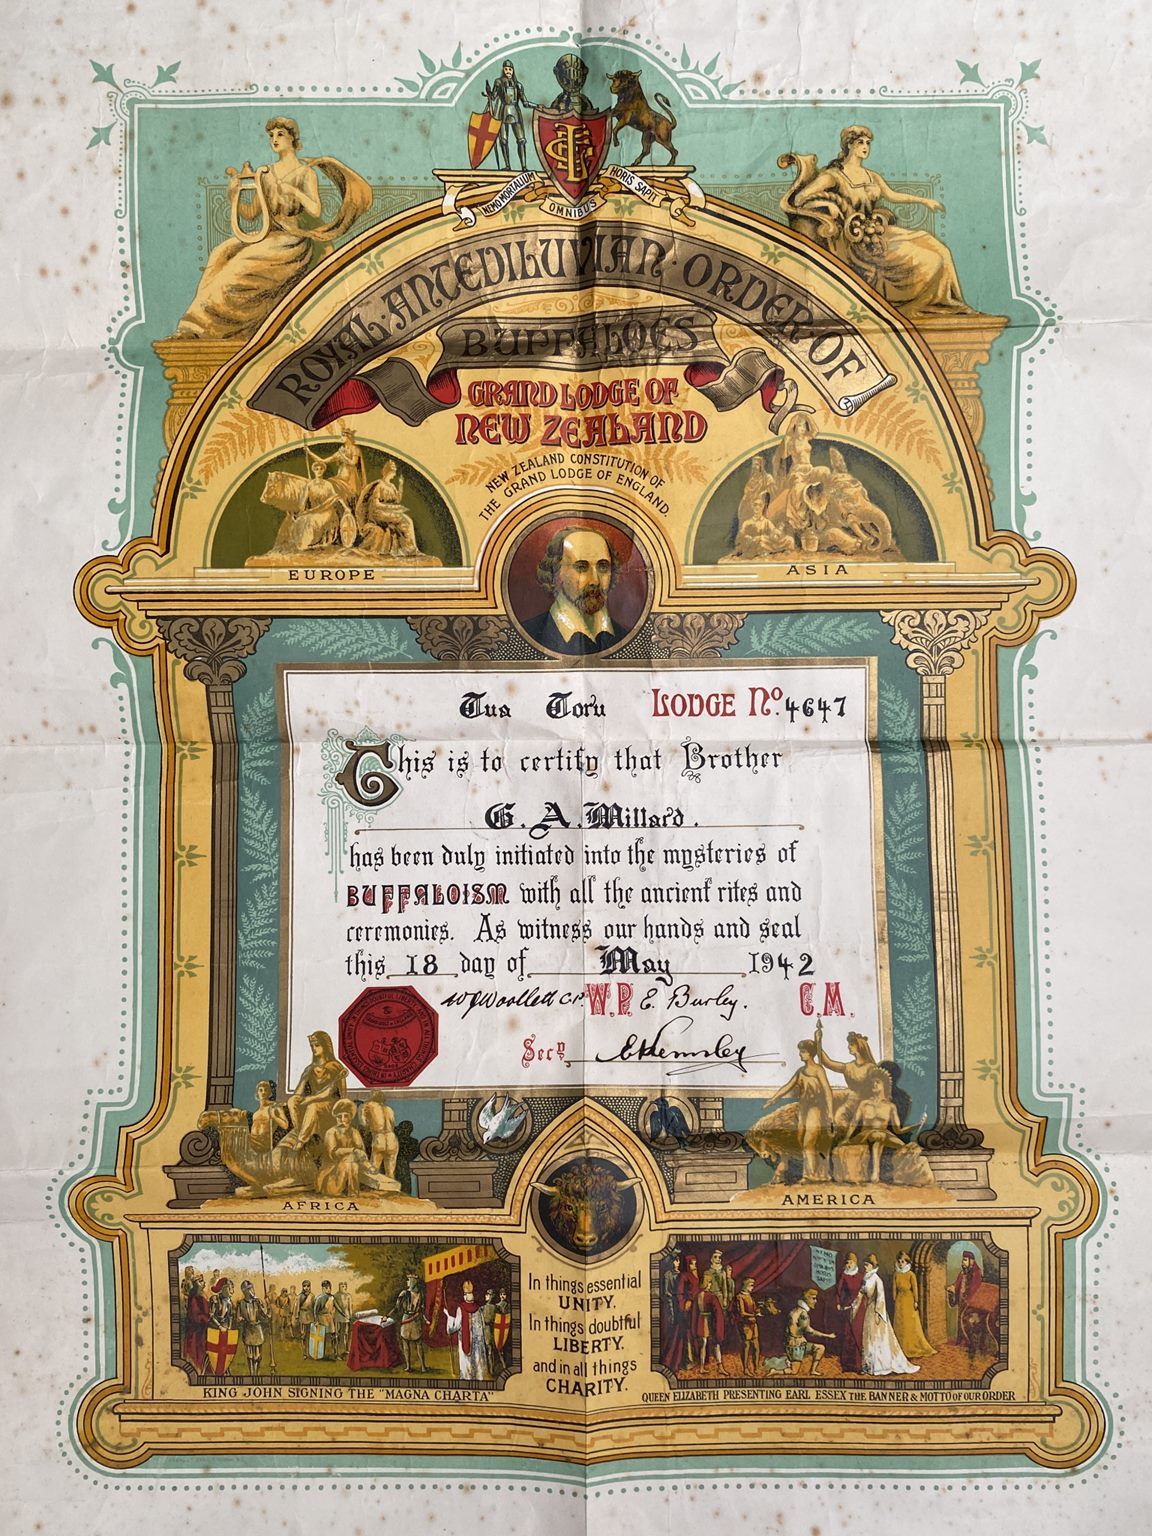 NEMO MORTALIUM
OMNIBUS
HORIS SAPIT
ROYAL · ANTEDILUVIAN · ORDER · OF
BUFFALOES
GRAND LODGE OF
NEW ZEALAND
NEW ZEALAND CONSTITUTION OF
THE GRAND LODGE OF ENGLAND.
EUROPE
ASIA
Tua Toru LODGE No. 4647
This is to certify that Brother
G. A. Millard.
has been duly initiated into the mysteries of
BUFFALOISM with all the ancient rites and
ceremonies. As witness our hands and seal
this 18 day of May 1942
W.P. E. Burley. C.M.
Secy
AFRICA
AMERICA
In things essential
UNITY.
In things doubtful
LIBERTY.
and in all things
CHARITY.
KING JOHN SIGNING THE "MAGNA CHARTA"
QUEEN ELIZABETH PRESENTING EARL ESSEX THE BANNER & MOTTO OF OUR ORDER